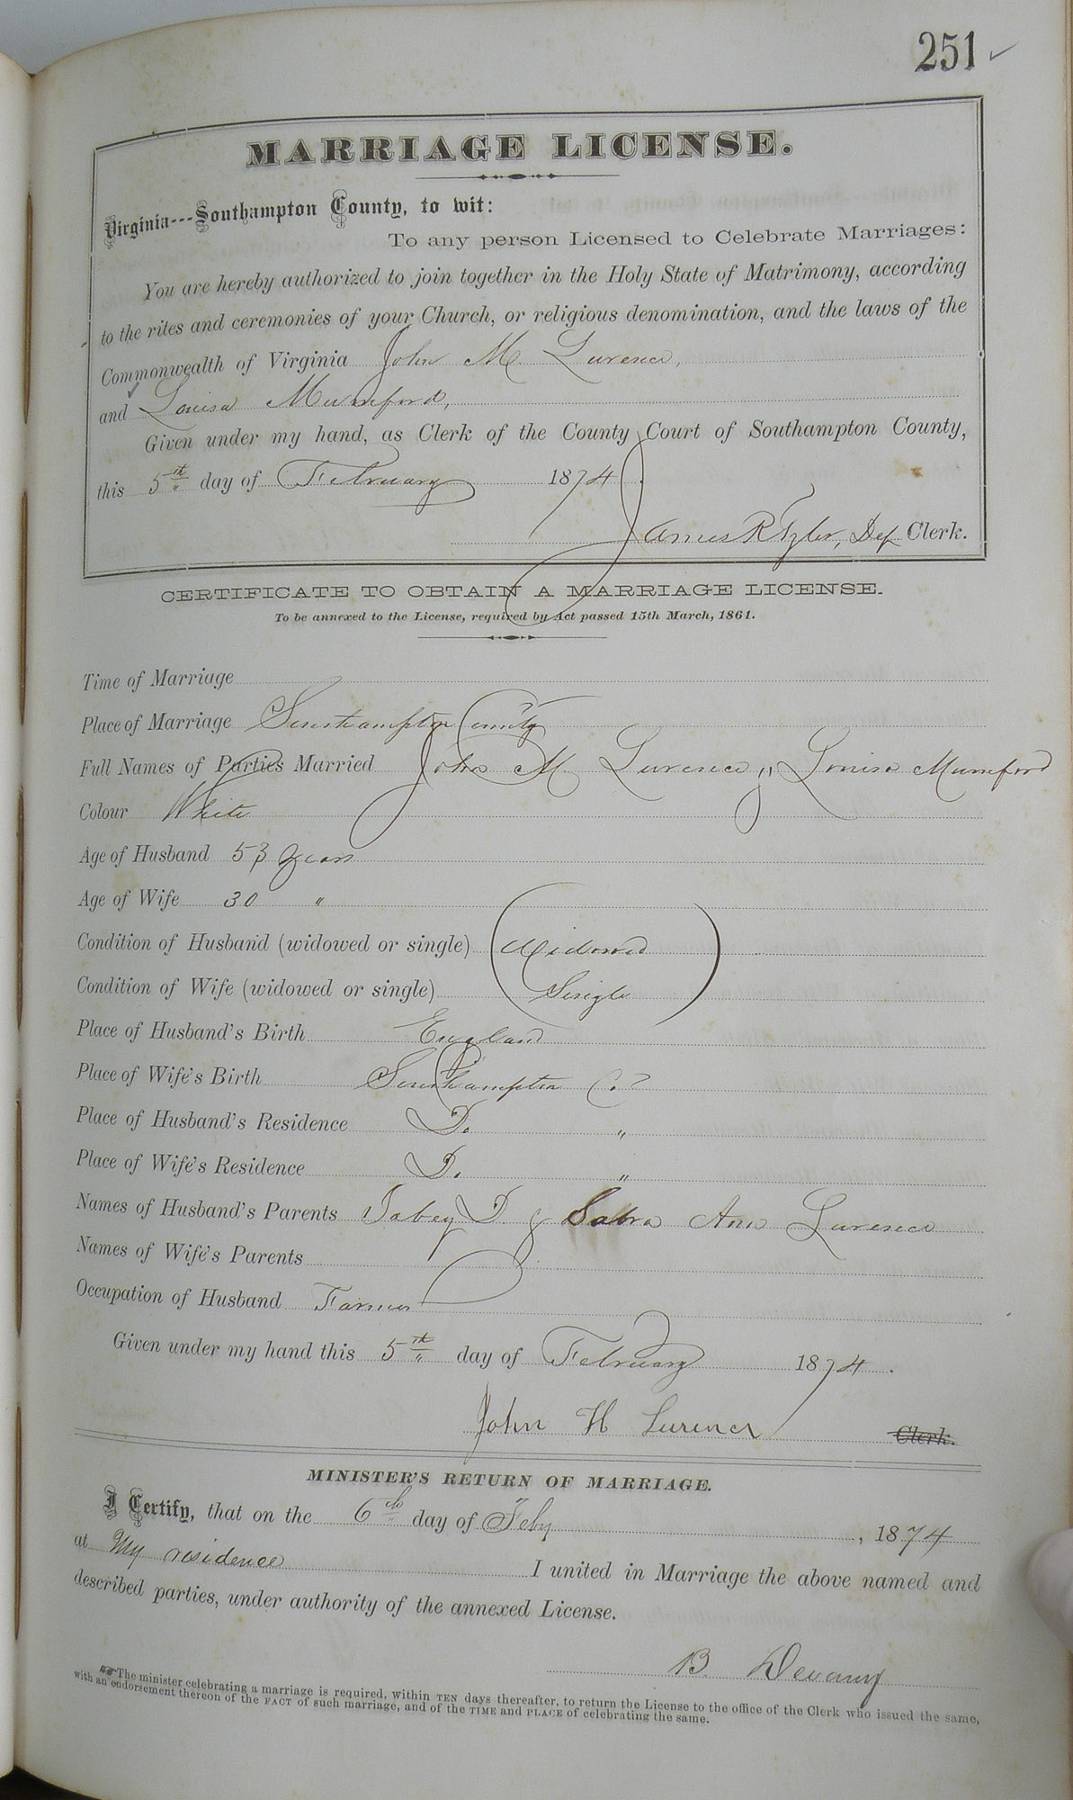 251
MARRIAGE LICENSE.
Virginia---Southampton County, to wit:
To any person Licensed to Celebrate Marriages:
You are hereby authorized to join together in the Holy State of Matrimony, according
to the rites and ceremonies of your Church, or religious denomination, and the laws of the
Commonwealth of Virginia John M. Lurence,
and Louisa Mumford,
Given under my hand, as Clerk of the County Court of Southampton County,
this 5th day of February 1874
James R Tyler, Dep Clerk.
CERTIFICATE TO OBTAIN A MARRIAGE LICENSE.
To be annexed to the License, required by Act passed 15th March, 1861.
Time of Marriage
Place of Marriage Southampton County
Full Names of Parties Married John M. Lurence, Louisa Mumford
Colour White
Age of Husband 53 years
Age of Wife 30 "
Condition of Husband (widowed or single) Widowed
Condition of Wife (widowed or single) Single
Place of Husband's Birth England
Place of Wife's Birth Southampton Co
Place of Husband's Residence Do "
Place of Wife's Residence Do "
Names of Husband's Parents D & Ann Lurence
Names of Wife's Parents
Occupation of Husband Farmer
Given under my hand this 5th day of February 1874.
John H Lurence Clerk.
MINISTER'S RETURN OF MARRIAGE.
I Certify, that on the 6th day of Feby, 1874
at My residence I united in Marriage the above named and
described parties, under authority of the annexed License.
B. Devany
The minister celebrating a marriage is required, within TEN days thereafter, to return the License to the office of the Clerk who issued the same,
with an endorsement thereon of the FACT of such marriage, and of the TIME and PLACE of celebrating the same.